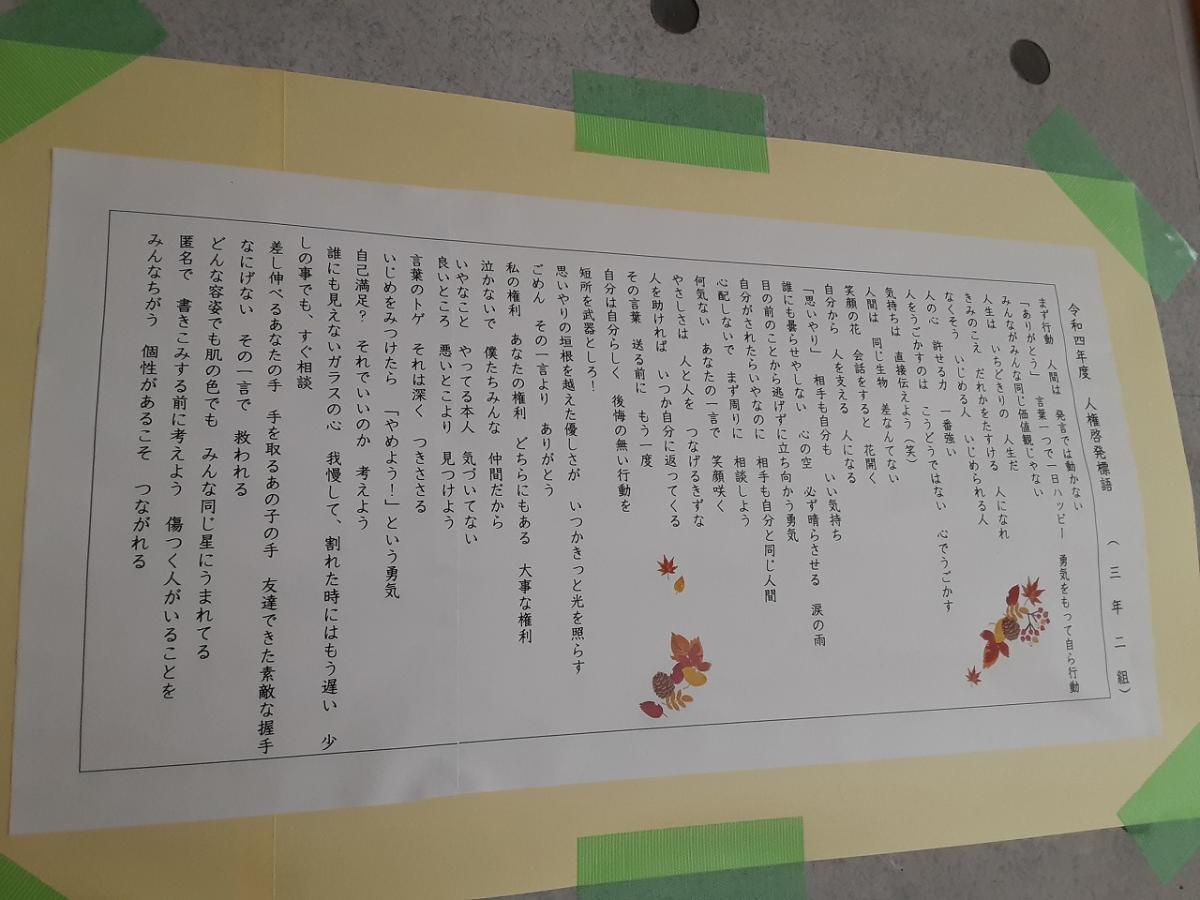 令和四年度　人権啓発標語　（三年二組）
まず行動　人間は　発言では動かない　勇気をもって自ら行動
「ありがとう」　言葉一つで一日ハッピー
みんながみんな同じ価値観じゃない
人生は　いちどきりの　人生だ
きみのこえ　だれかをたすける　人になれ
なくそう　いじめる人　いじめられる人
人の心　許せる力　一番強い
人をうごかすのは　こうどうではない　心でうごかす
気持ちは　直接伝えよう（笑）
人間は　同じ生物　差なんてない
笑顔の花　会話をすると　花開く
自分から　人を支える　人になる
「思いやり」　相手も自分も　いい気持ち
誰にも曇らせやしない　心の空　必ず晴らさせる　涙の雨
目の前のことから逃げずに立ち向かう勇気
自分がされたらいやなのに　相手も自分と同じ人間
心配しないで　まず周りに　相談しよう
何気ない　あなたの一言で　笑顔咲く
やさしさは　人と人を　つなげるきずな
人を助ければ　いつか自分に返ってくる
その言葉　送る前に　もう一度
自分は自分らしく　後悔の無い行動を
短所を武器としろ！
思いやりの垣根を越えた優しさが　いつかきっと光を照らす
ごめん　その一言より　ありがとう
私の権利　あなたの権利　どちらにもある　大事な権利
泣かないで　僕たちみんな　仲間だから
いやなこと　やってる本人　気づいてない
良いところ　悪いとこより　見つけよう
言葉のトゲ　それは深く　つきささる
いじめをみつけたら　「やめよう！」という勇気
自己満足？　それでいいのか　考えよう
誰にも見えないガラスの心　我慢して、割れた時にはもう遅い　少
しの事でも、すぐ相談
差し伸べるあなたの手　手を取るあの子の手　友達できた素敵な握手
なにげない　その一言で　救われる
どんな容姿でも肌の色でも　みんな同じ星にうまれてる
匿名で　書きこみする前に考えよう　傷つく人がいることを
みんなちがう　個性があるこそ　つながれる